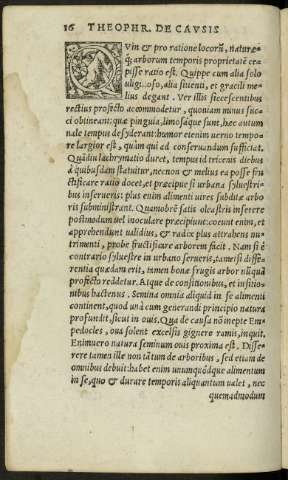 16 THEOPHR. DE CAVSIS
QVin & pro ratione locorũ, naturæ-
q; arborum temporis proprietatẽ ce-
pisse ratio est. Quippe cum alia solo
uliginoso, alia siuenti, et gracili me-
lius degant. Ver illis siccescentibus
rectius profecto accommodetur, quoniam minus succi
obtineant: quæ pinguia, limosaque sunt, hæc autum
nale tempus desyderant: humor etenim uerno tempo
re largior est, quàm qui ad conseruandum sufficiat.
Quãdiu lachrymatio duret, tempus id tricenis diebus
à quibusdam statuitur, necnon & melius ea posse fru
ctificare ratio docet, et præcipue si urbana syluestri-
bus inserueris: plus enim alimenti uires subditæ arbo
ris subministrant. Quamobrẽ satis oleastris inserere
postmodum uel inoculare præcipiunt: coeunt enim, et
apprehendunt ualidius, & radix plus attrahens nu-
trimenti, probe fructificare arborem facit. Nam si è
contrario syluestre in urbano serueris, tametsi diffe-
rentia quædam erit, tamen bonæ frugis arbor nũquã
profecto reddetur. Atque de consitionibus, et insitio-
nibus hactenus. Semina omnia aliquid in se alimenti
continent, quod unà cum generandi principio natura
profundit, sicut in ouis. Qua de causa nõ inepte Em-
pedocles, oua solent excelsis gignere ramis, inquit.
Enimuero natura seminum ouis proxima est. Disse-
rere tamen ille non tãtum de arboribus, sed etiam de
omnibus debuit: habet enim unumquodque alimentum
in se, quo & durare temporis aliquantum ualet, nec
quemadmodum